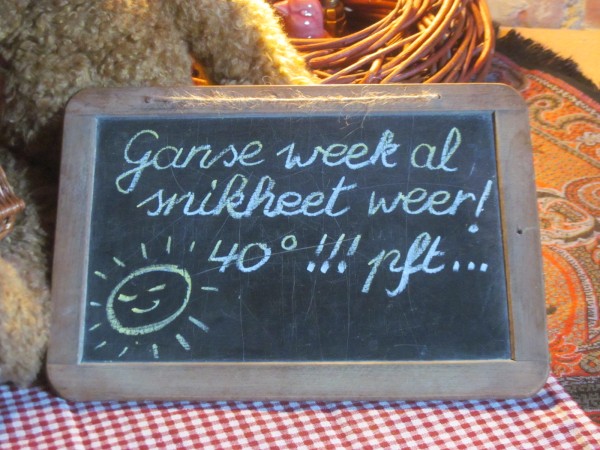 Ganse week al
snikheet weer!
40° !!! pft...